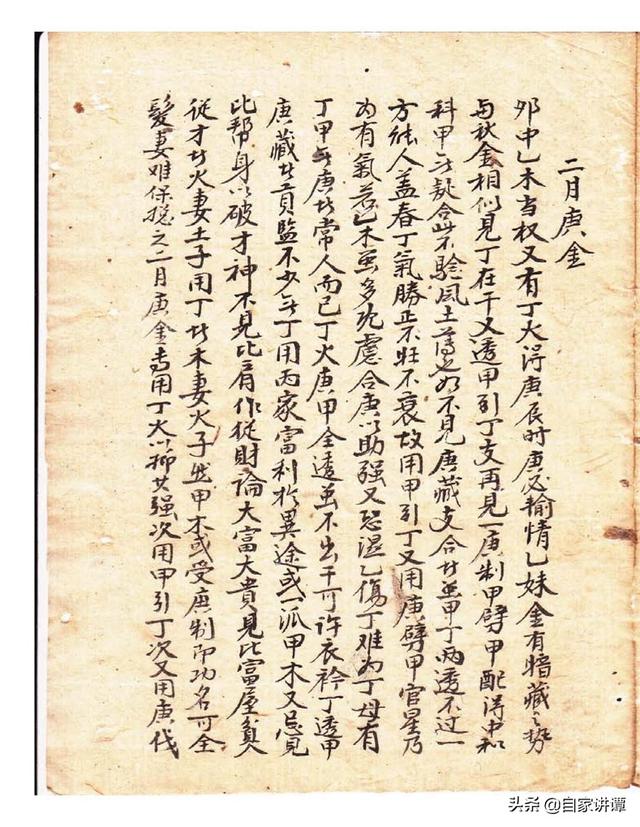 二月庚金
卯中乙木当权又有丁火得庚辰时庚必输情乙妹金有暗藏之势
与秋金相似見丁在干又透甲引丁支再見一庚制甲劈甲配得中和
科甲无疑合此不驗風土薄也如不見庚藏支合此並甲丁两透不过一
方能人盖春丁氣勝正不旺不衰故用甲引丁又用庚劈甲官星乃
为有氣若乙木虽多犹慮合庚以助强又恐湿乙傷丁难为丁母有
丁甲无庚此常人而已丁火庚甲全透虽不出干可许衣衿丁透甲
庚藏此貢監不少无丁用丙家富利於異途或一派甲木又忌見
比帮身以破才神不見比肩作從財論大富大貴見比富屋貧人
從才此火妻土子用丁此木妻火子然甲木或受庚制即功名可全
髮妻难保總之二月庚金専用丁火以抑其强次用甲引丁次又用庚伐
头条 @自家讲谭